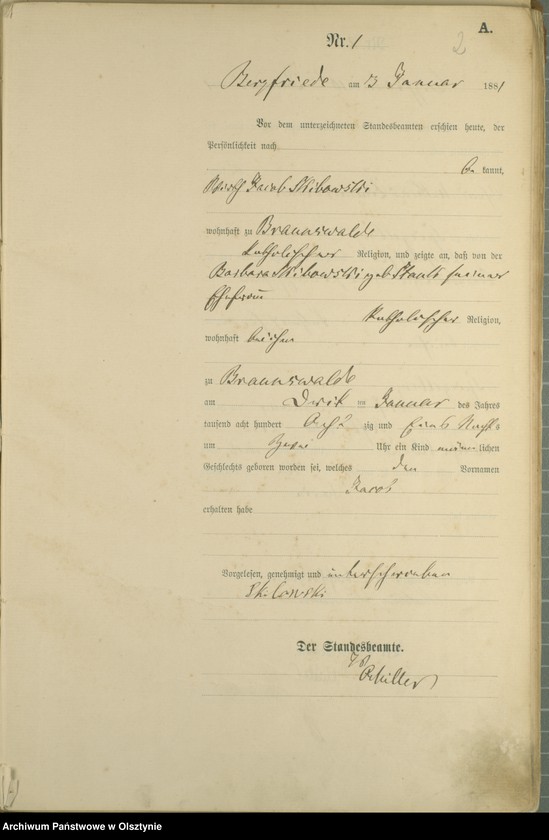 A.
Nr. 1
2
Bergfriede am 3 Januar 1881
Vor dem unterzeichneten Standesbeamten erschien heute, der
Persönlichkeit nach
be kannt,
Jacob Skibowski
wohnhaft zu Braunswalde
katholischer Religion, und zeigte an, daß von der
Barbara Skibowski geb seiner
Ehefrau
katholischer Religion,
wohnhaft bei ihm
zu Braunswalde
am Januar des Jahres
tausend acht hundert Acht zig und Eins Nachts
um Uhr ein Kind männ lichen
Geschlechts geboren worden sei, welches den Vornamen
Jacob
erhalten habe
Vorgelesen, genehmigt und unterschrieben
Skibowski
Der Standesbeamte.
Archiwum Państwowe w Olsztynie